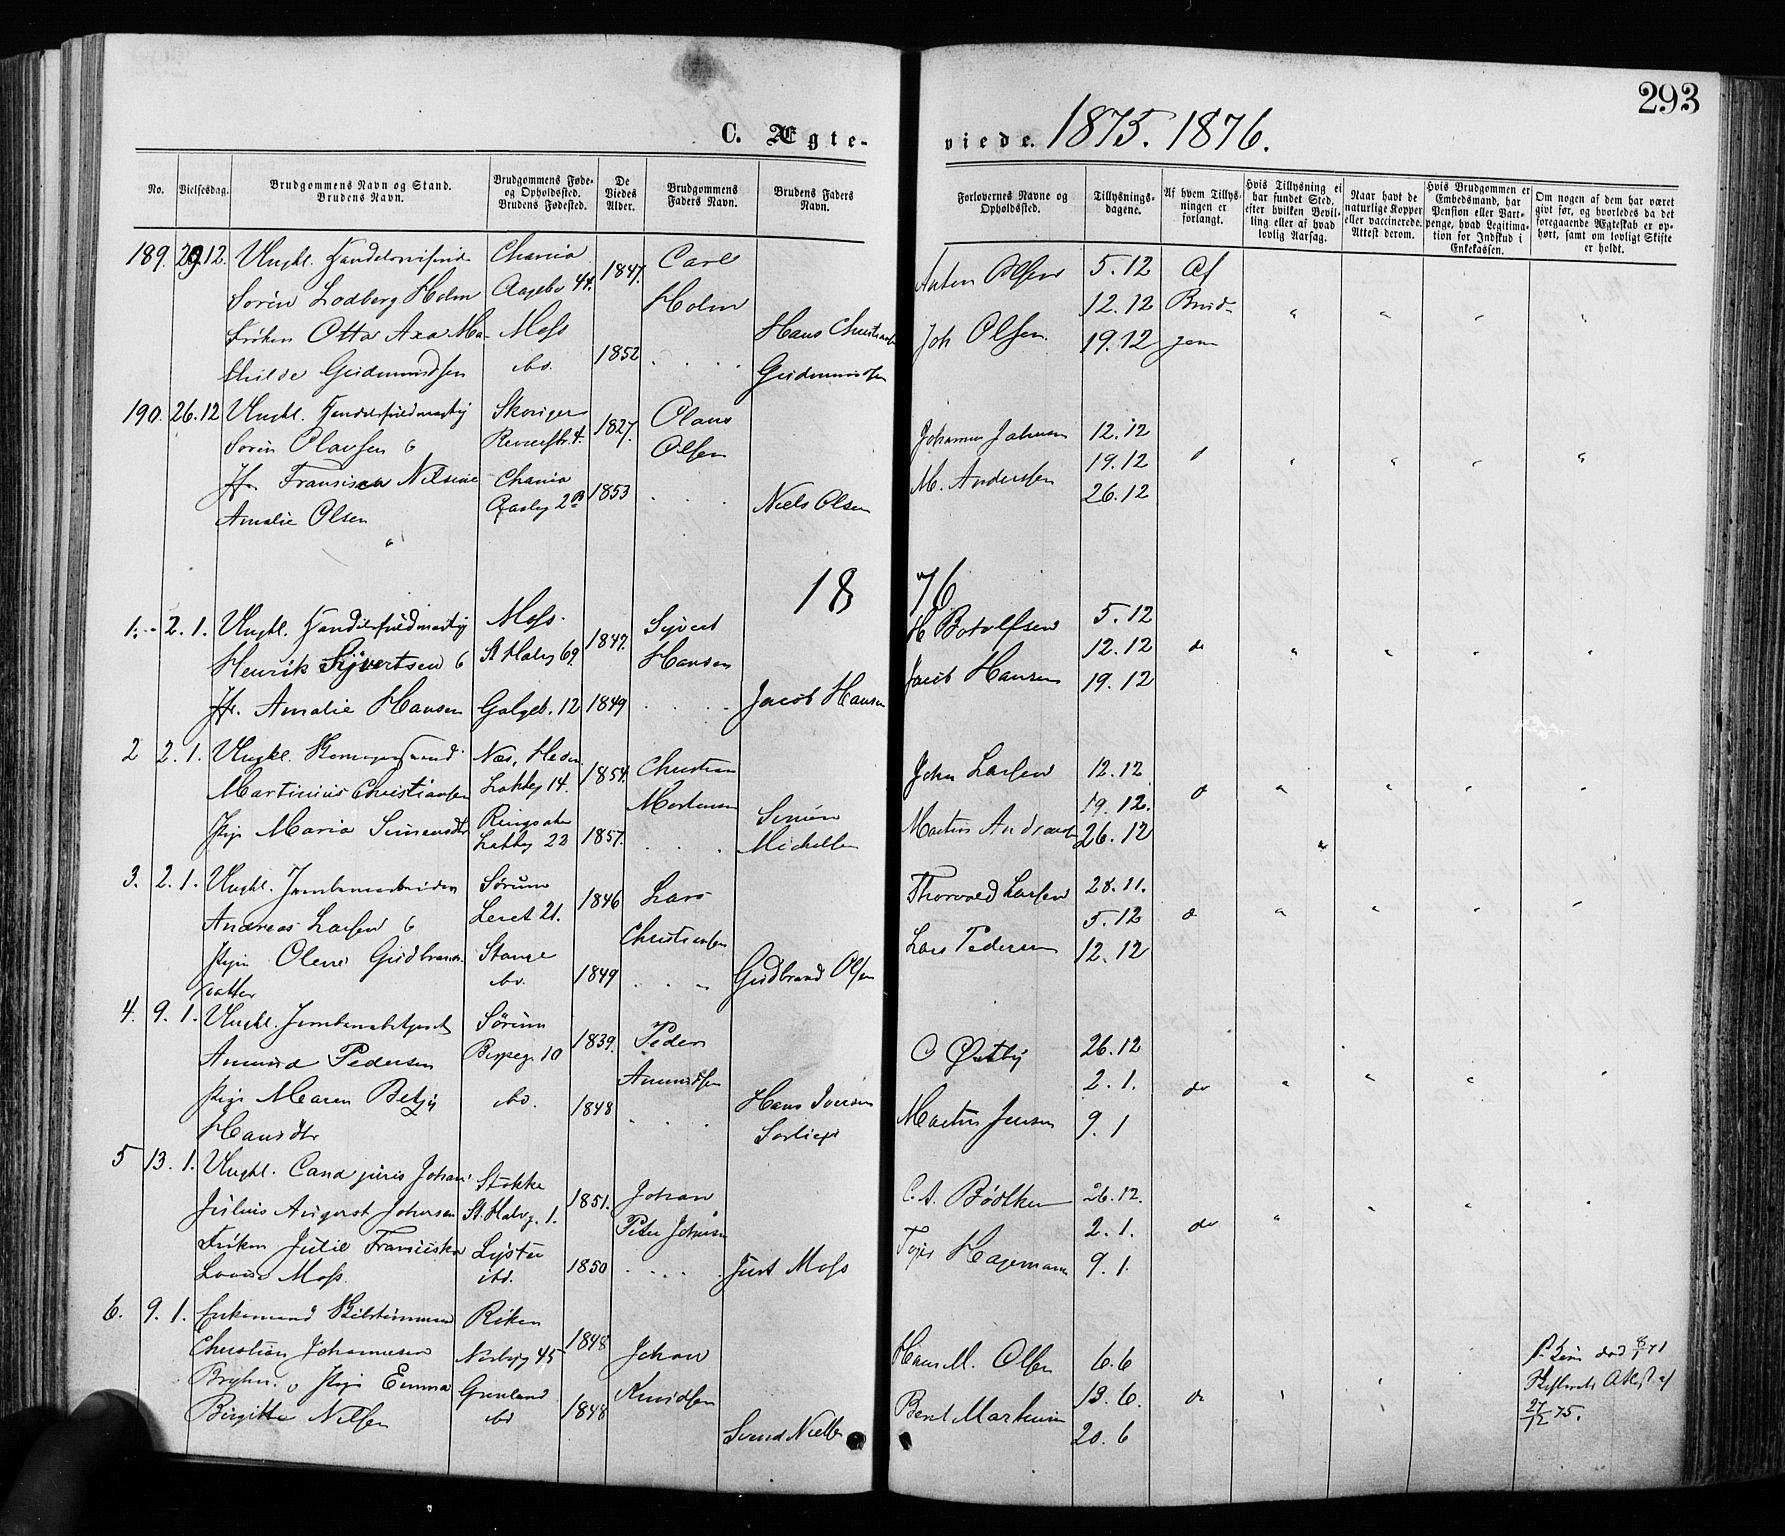 293
C. Ægte-
viede. 1875. 1876.
No.
Vielsesdag.
Brudgommens Navn og Stand.
Brudens Navn.
Brudgommens Føde-
og Opholdssted.
Brudens Fødested.
De
Viedes
Alder.
Brudgommens
Faders Navn.
Brudens Faders
Navn.
Forlovernes Navne og
Opholdssted.
Tillysnings-
dagene.
Af hvem Tillys-
ningen er
forlangt.
Hvis Tillysning ei
har fundet Sted,
efter hvilken Bevil-
ling eller af hvad
lovlig Aarsag.
Naar havt de
naturlige Kopper
eller vaccinerede.
Attest derom.
Hvis Brudgommen er
Embedsmand, har
Pension eller Vart-
penge, hvad Legitima-
tion for Indskud i
Enkekassen.
Om nogen af dem har været
givt før, og hvorledes da det
foregaaende Ægteskab er op-
hørt, samt om lovligt Skifte
er holdt.
189. 29.12. Ungkl. Chania 1847. Carl
Sorin Lodberg Holm Aagebg 44. Holm
Frøken Otto Axa Ma- Moss 1852 Hans Christian
thilde Gudmundsen ibd. Gudmundsen
Anton Olsen 5.12 Af
12.12 Brud-
Joh Olsen. 19.12 gom
190. 26.12 Ungkl. Skoviger 1827. Olaus
Sorin Olausen 4. Olsen
Jfr Francisca Nilsine Chania 1853
Amalie Olsen 2B Niels Olsen
Johannes Johnsen 12.12
M. Andersen 19.12
26.12
1876
1. 2.1. Ungkl. Moss. 1847. Syvert
Henrik Syvertsen St Halvg 69 Hansen
Jfr. Amalie Hansen Galgeb. 12 1849 Jacob Hansen
H Botolfsen 5.12
12.12 do
Jacob Hansen 19.12
2 2.1. Ungkl. Næs, Hedm 1854. Christian
Martinius Christiansen Lakkeg 14. Mortensen
Pige Maria Simensdtr Ringsaker 1857. Simen
Lakkeg 22 Mickelsen
John Larsen 12.12
19.12.
Martin Andersen 26.12
3. 2.1. Ungkl. Jernbanearbeider Sørum 1846 Lars
Andreas Larsen Leret 21. Christiansen
Pigen Oline Gudbrands- Stange 1849
datter ibd. Gudbrand Olsen
Thorvald Larsen 28.11.
5.12
Lars Pedersen 12.12
4. 9.1. Ungkl. Jernbanebetjent Sørum 1839. Peder
Amund Pedersen 10 Amundsen
Pige Maren Betzy ibd. 1848 Hans Iversen
Hansdtr
O Østby 26.12
2.1. do
Martin Jensen 9.1
5 13.1. Ungkl. Cand juris Johan Stokke 1851. Johan
Julius August Johnsen St. Halvg. 1. Peter Johnsen
Frøken Julie Franciska Lyster 1850 Just Moss
Lovise Moss. ibd.
C. A. Bødtker 26.12.
2.1. do
Hagemann 9.1.
6. 9.1. Enkemand Røken 1848 Johan
Christian Johannesen Norbyg 45 Knudsen
Bryhn. Pige Emma Grenland 1848
Birgitte Nilsen ibd Svend Nielsen
Hans M. Olsen 6.6
13.6. do
Bernt Martinsen 20.6
død 8/1 71
Attest af
27/12 75.